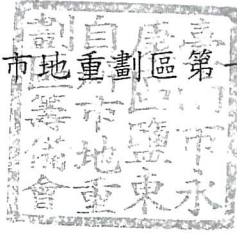 市地重劃區第一
臺南市永
康區鹽東
自辦市地重
劃區籌備會